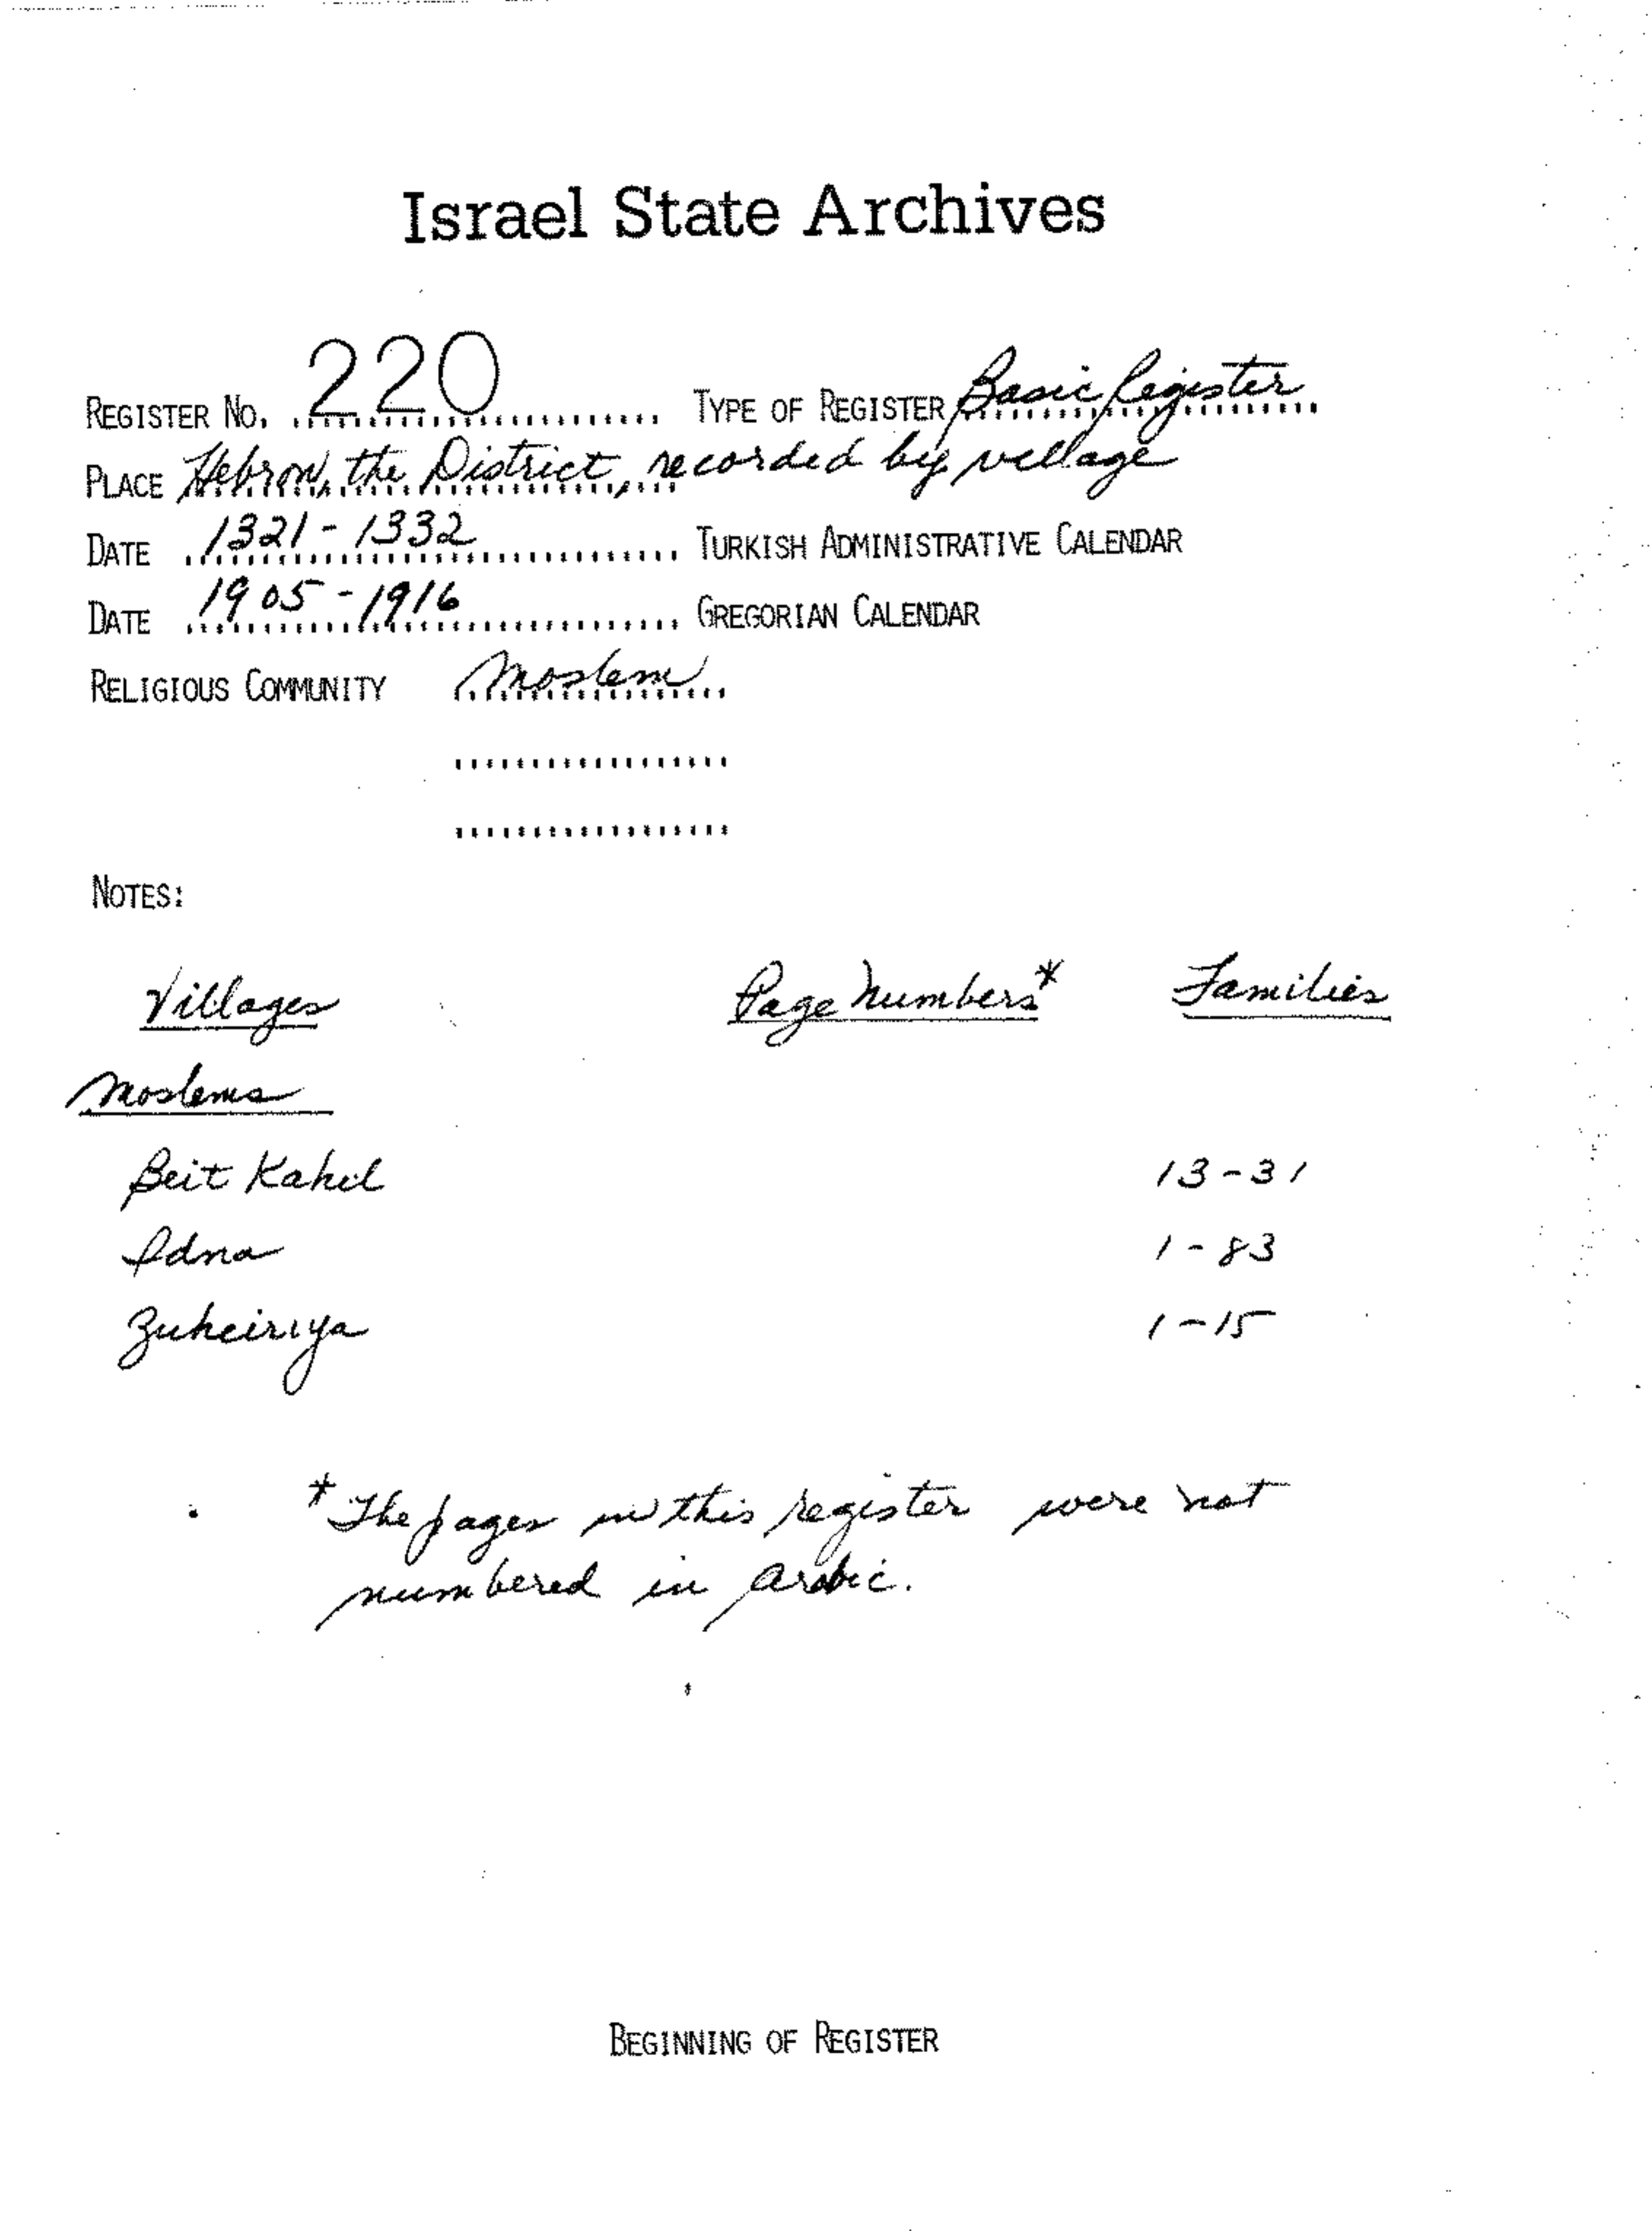 Israel State Archives
REGISTER NO. 220 TYPE OF REGISTER Basic Register
PLACE Hebron, the District, recorded by village
DATE 1321-1332 TURKISH ADMINISTRATIVE CALENDAR
DATE 1905-1916 GREGORIAN CALENDAR
RELIGIOUS COMMUNITY Moslem
NOTES:
Villages Page Numbers* Families
Moslems
Beit Kahil 13-31
Idna 1-83
Zuheiriya 1-15
* The pages in this register were not
numbered in Arabic.
BEGINNING OF REGISTER